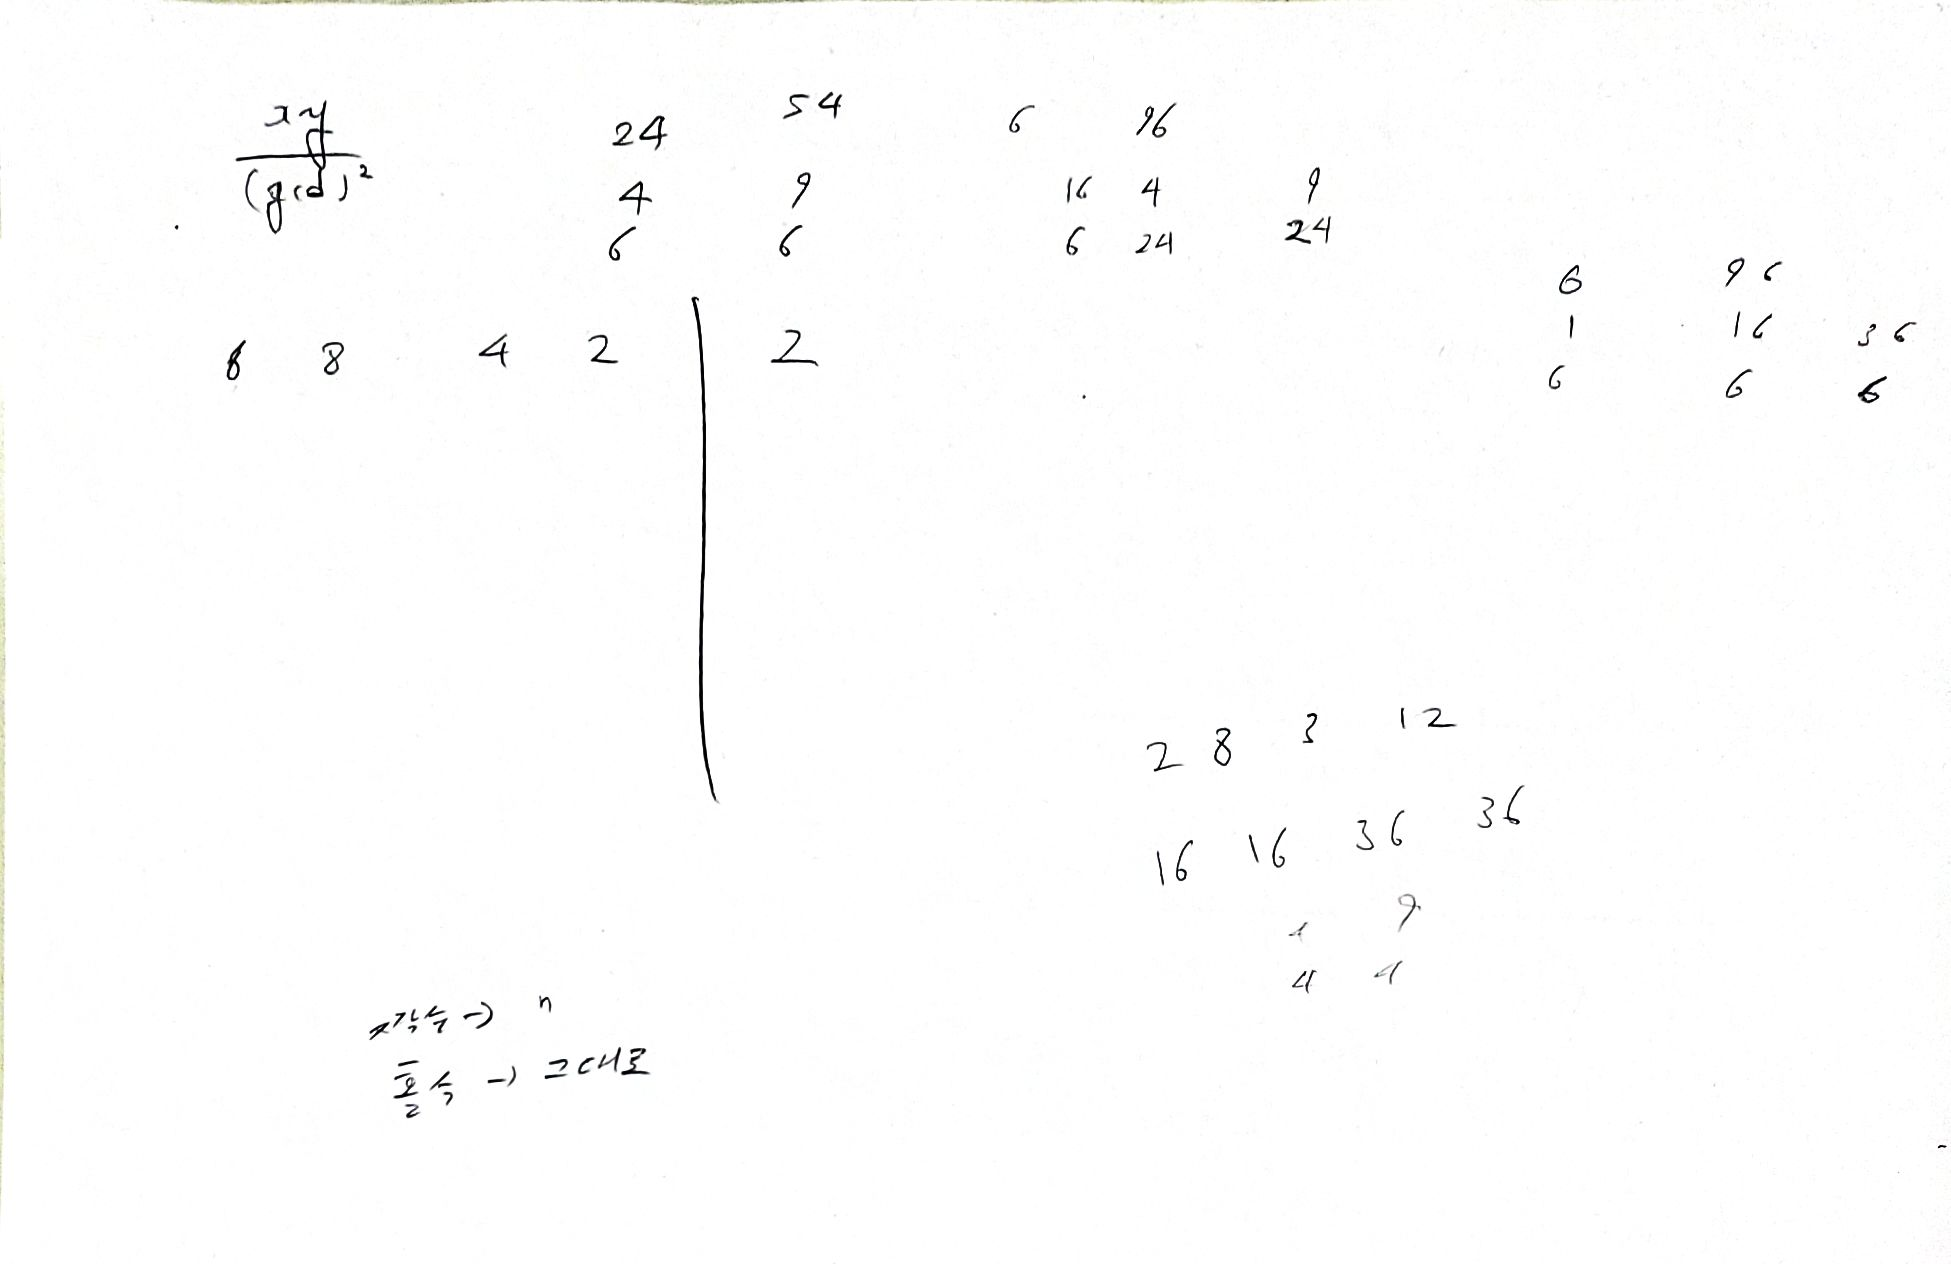 xy
(gcd)²
24 54 6 96
4 9 16 4 9
6 6 6 24 24
6 96
1 16 36
6 6 6
6 8 4 2 2
2 8 3 12
16 16 36 36
9
4 4
짝수 → n
홀수 → 그대로